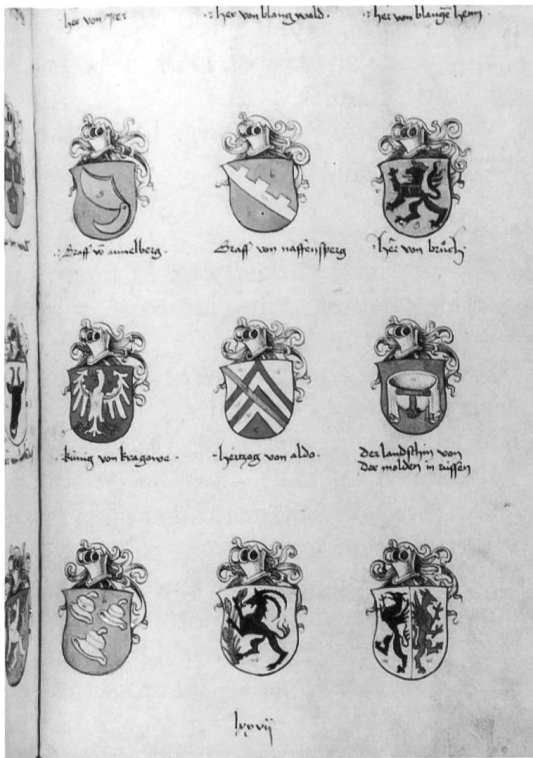 her von
her von blangwald
her von
Graff võ
Graff von nassensperg
her von bruch
künig von kragowe
hertzog von aldo
der landsthin von
der molden in rüssen
lxxvij